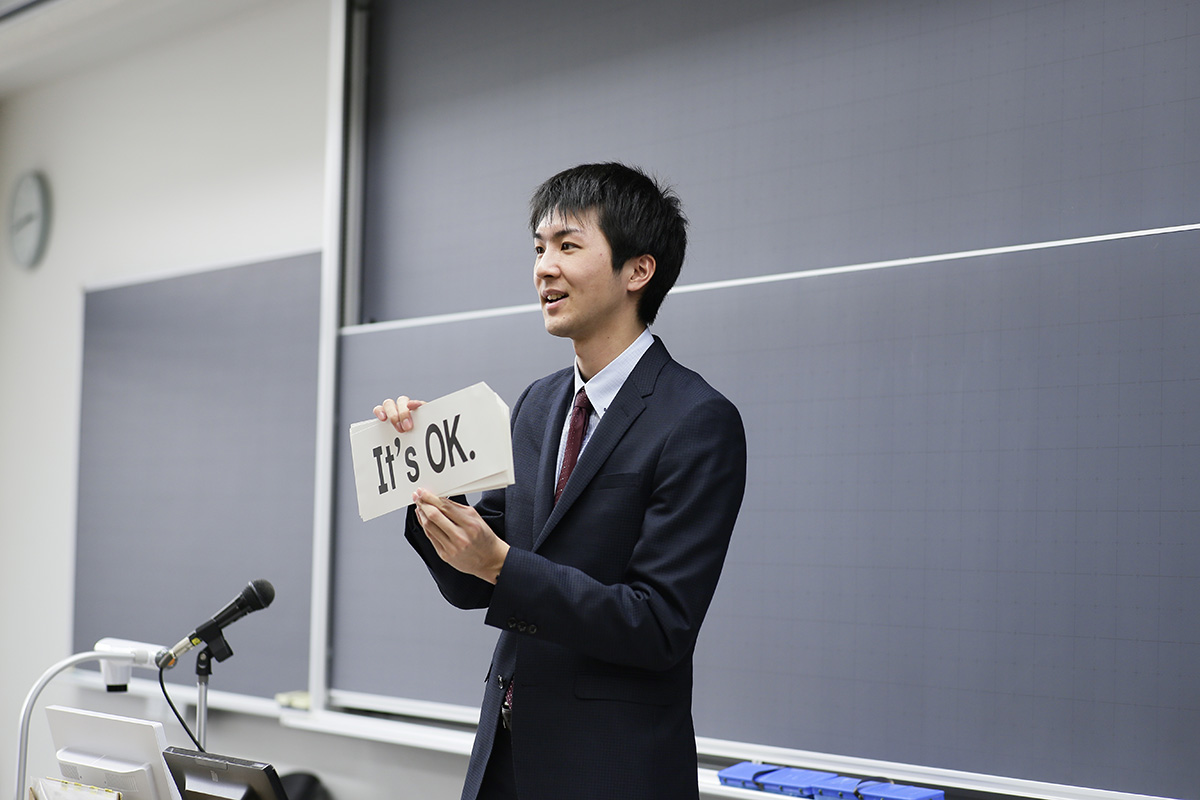 It's OK.